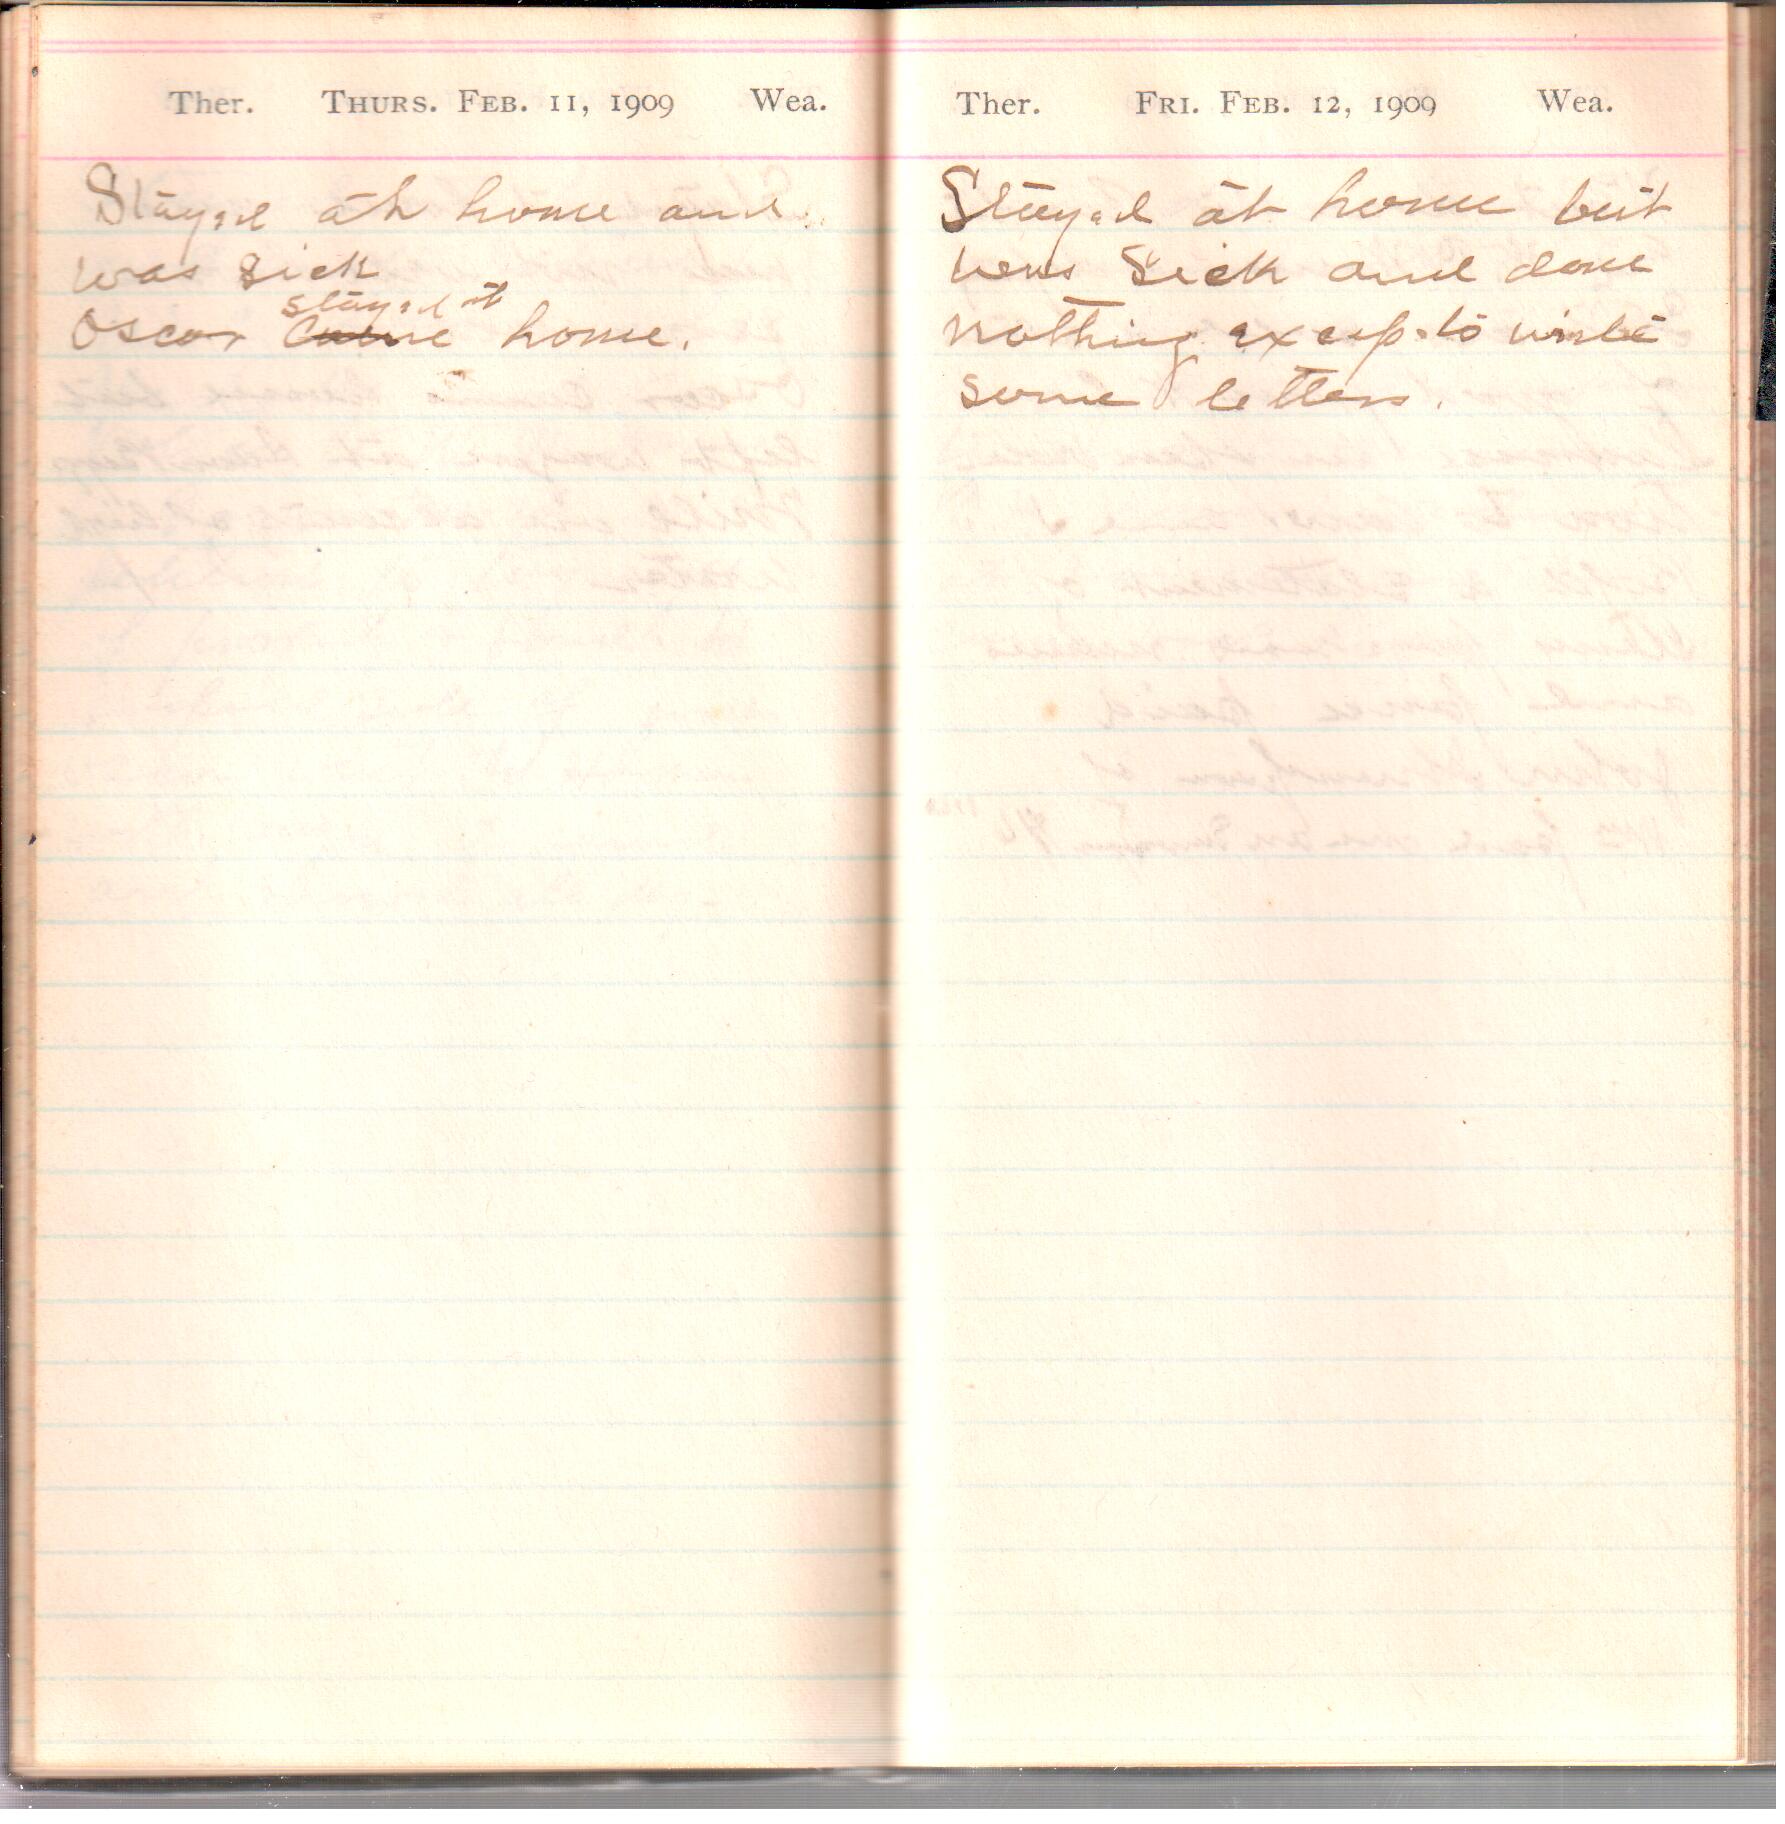 Ther. THURS. FEB. 11, 1909 Wea.
Stayed at home and
was sick
stayed at
Oscar came home.
Ther. FRI. FEB. 12, 1909 Wea.
Stayed at home but
was sick and done
nothing excep to write
some letters.